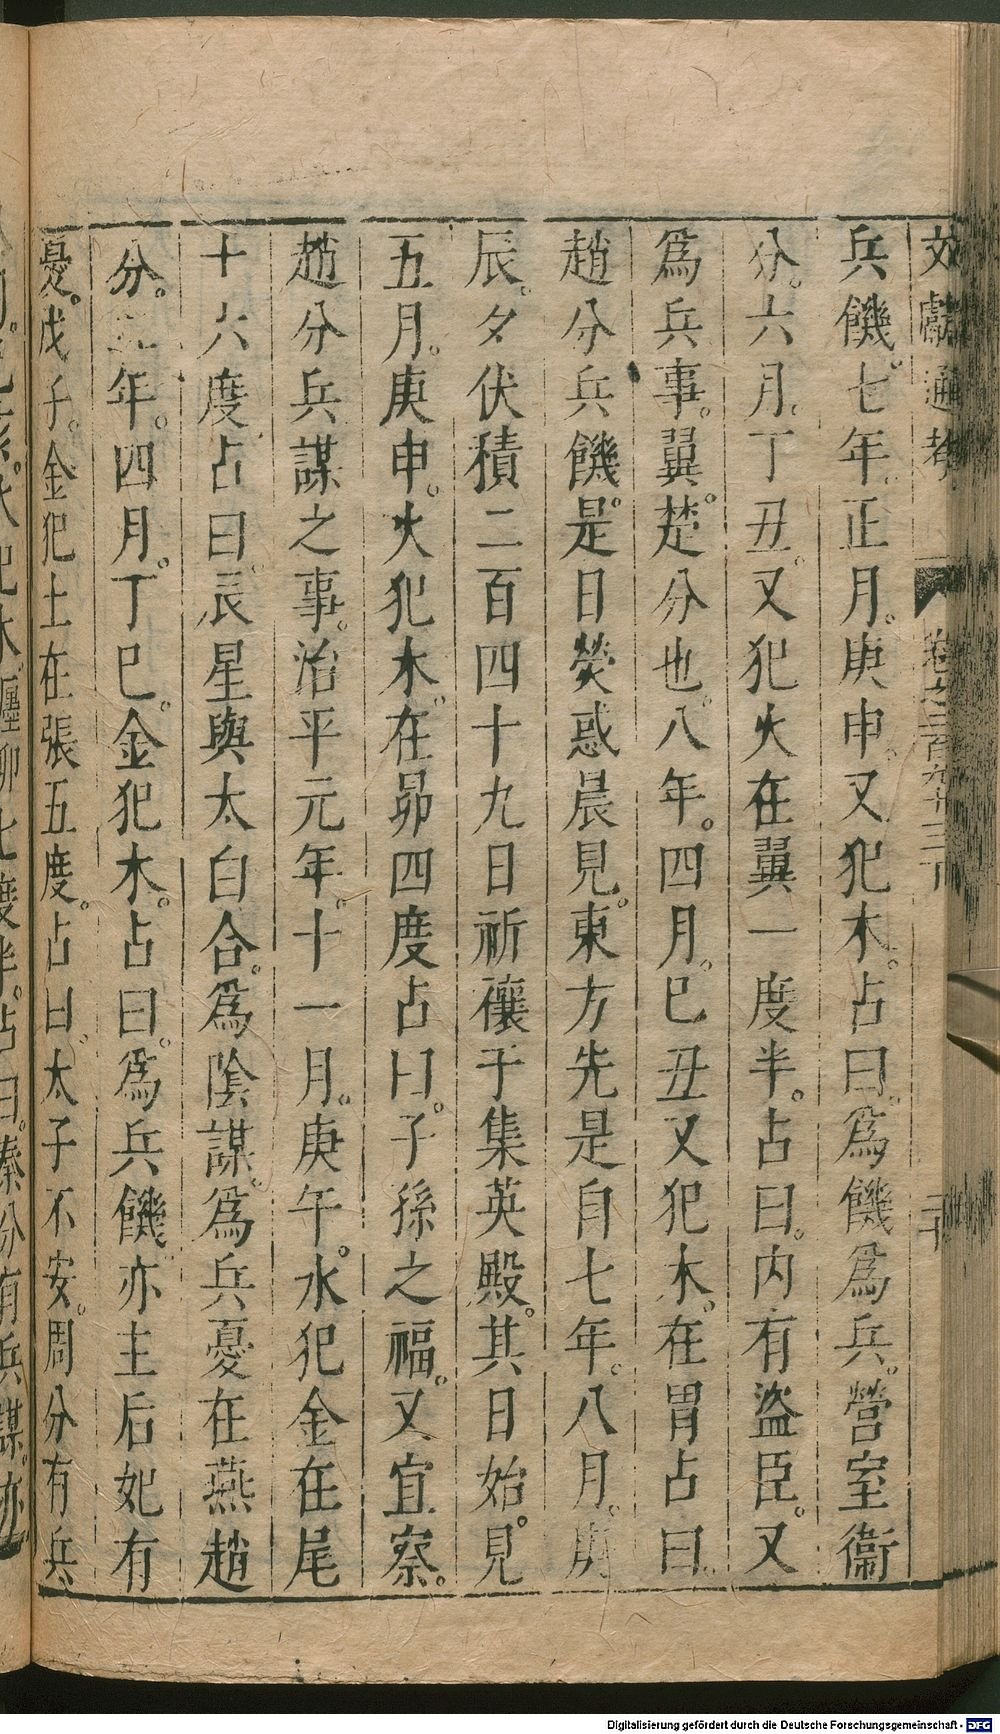 文獻通考 卷之二百九十三下 三十
兵饑。七年。正月。庚申。又犯木。占曰。爲饑爲兵。營室衞
分。六月。丁丑。又犯火在翼一度半。占曰。内有盜臣。又
爲兵事。翼。楚分也。八年。四月。巳丑又犯木。在胃占曰。
趙分兵饑。是日熒惑晨見。東方先是自七年。八月。庚
辰。夕伏積二百四十九日祈禳于集英殿。其日始。見
五月。庚申。火犯木。在昴四度占曰。子孫之福。又宜察。
趙分兵謀之事。治平元年。十一月。庚午。水犯金在尾
十六度占曰。辰星與太白合。爲陰謀。爲兵憂在燕趙
分。年。四月。丁巳。金犯木。占曰。爲兵饑亦主后妃有
憂。戊子。金犯土在張五度。占曰。太子不安。周分有兵
犯水。躔柳七度半。占曰。秦分有兵謀。亦
Digitalisierung gefördert durch die Deutsche Forschungsgemeinschaft - DFG